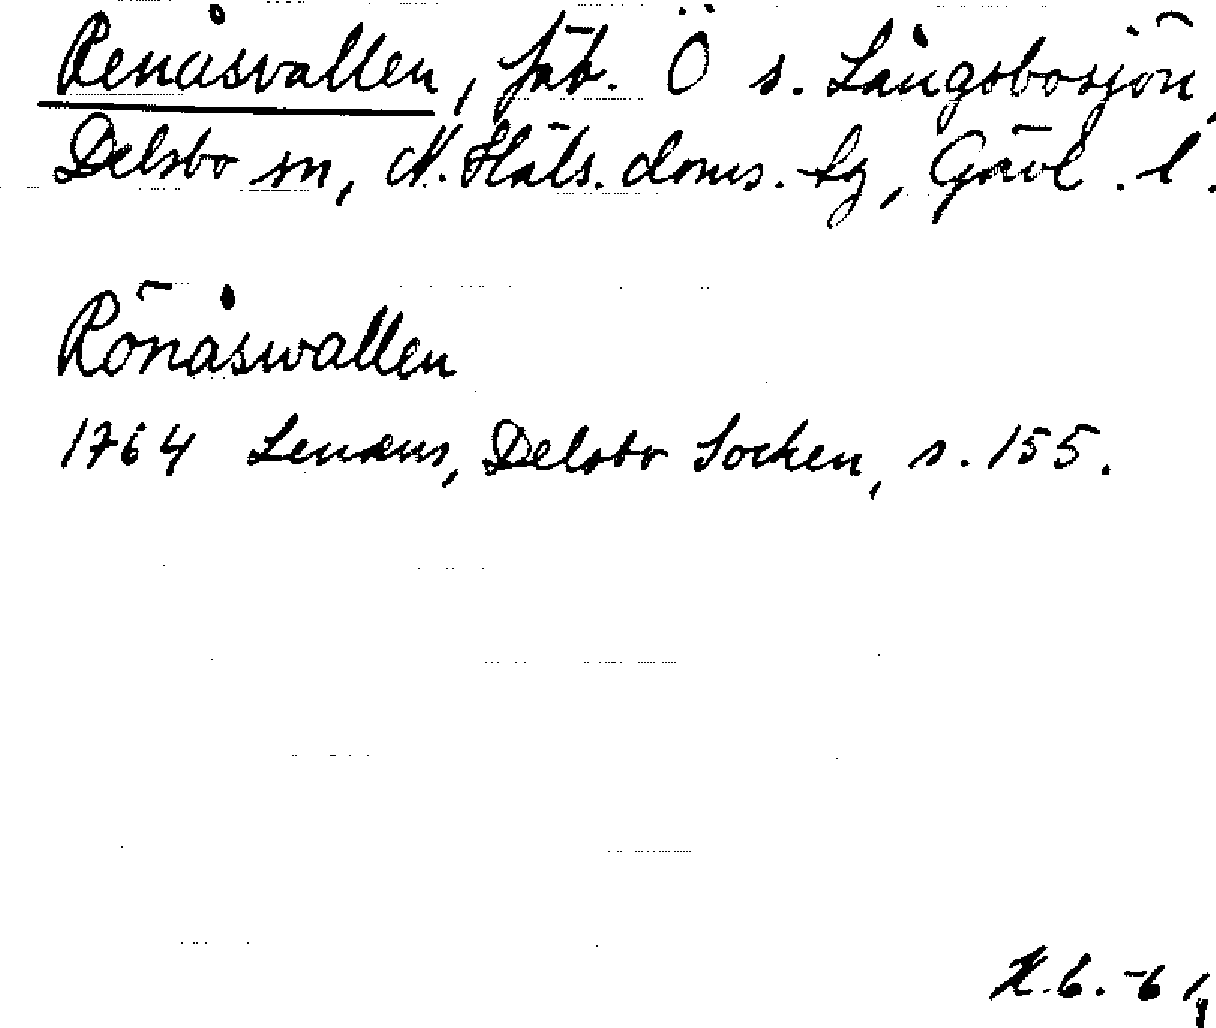 Renåsvallen, fäb. Ö s. Långsbosjön,
Delsbo sn, N. Häls. doms. tg, Gävl. l.
Rönåswallen
1764 Lenæus, Delsbo Socken, s. 155.